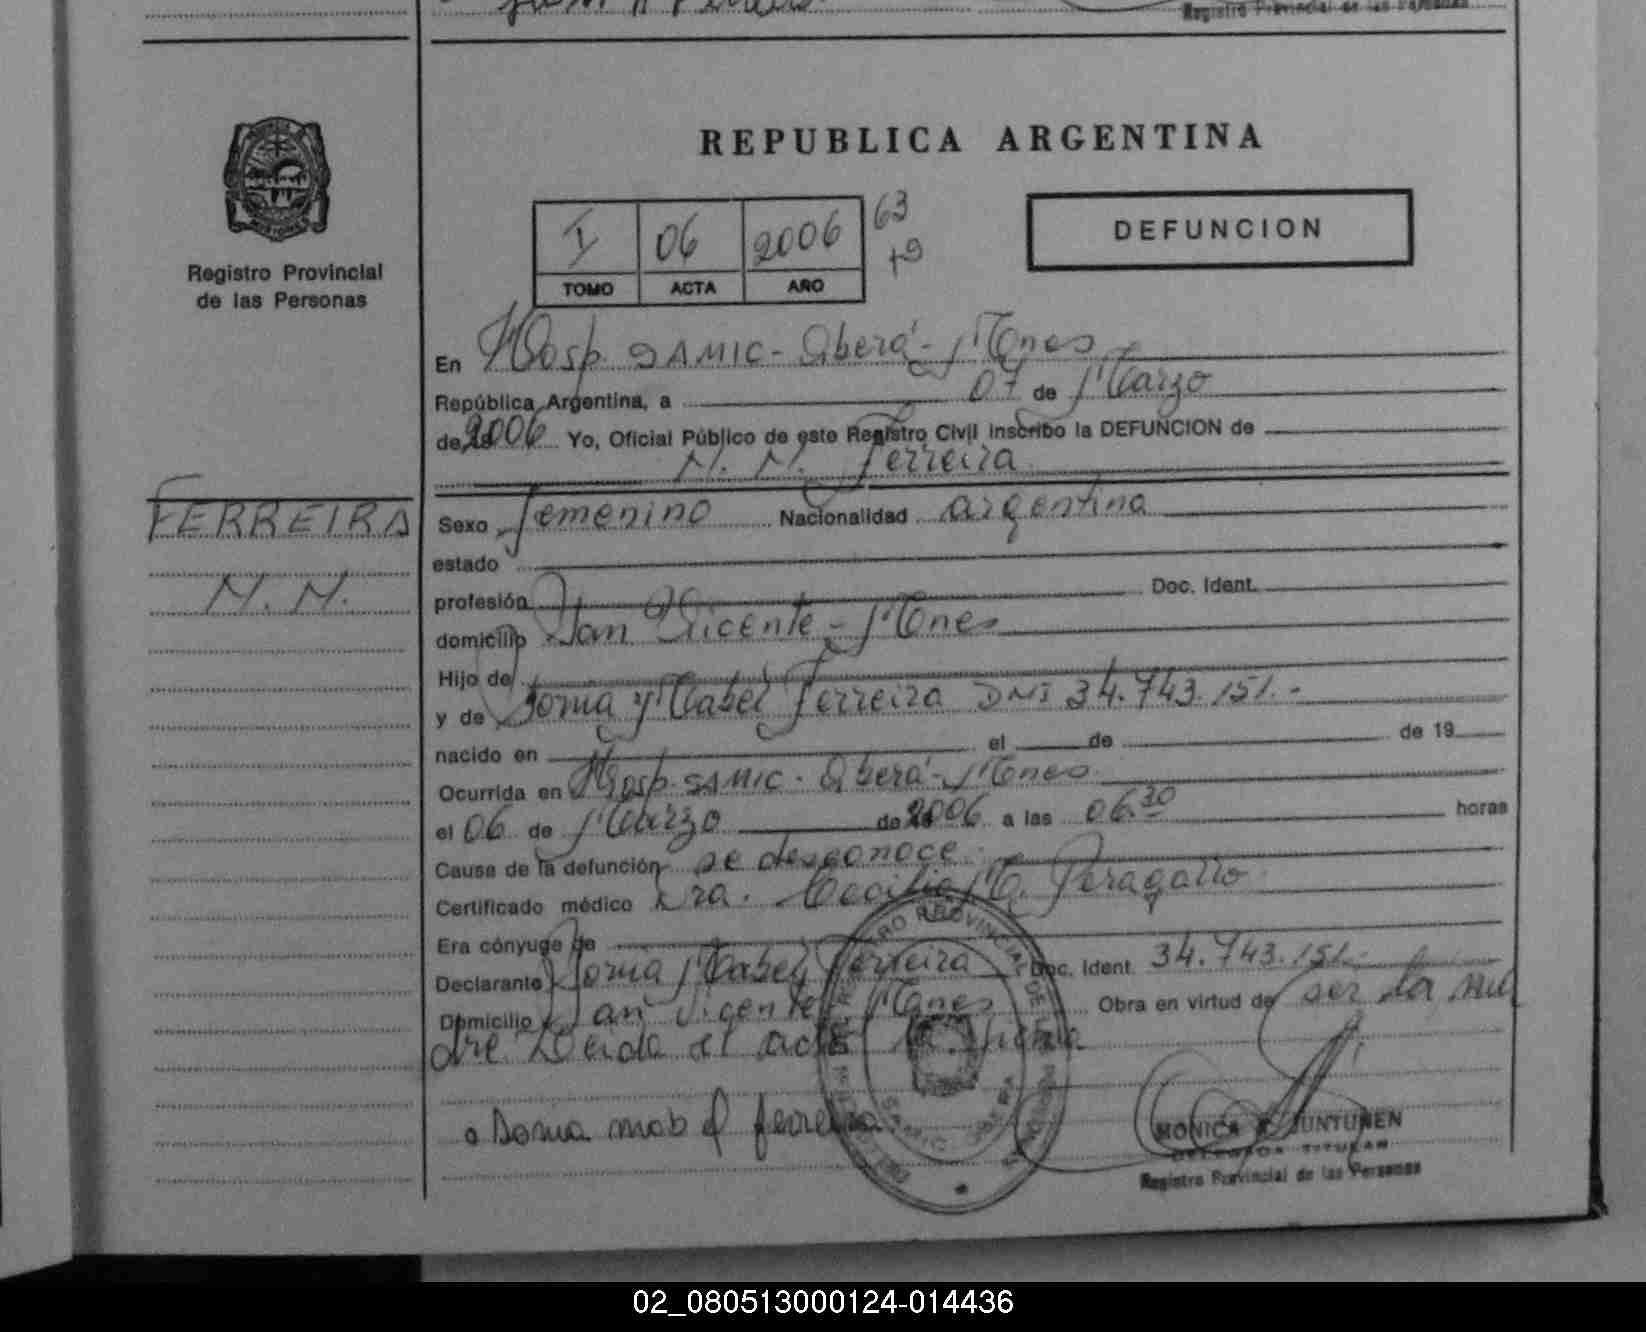 Registro Provincial de las Personas
REPUBLICA ARGENTINA
I 06 2006 63
TOMO ACTA AÑO +9
DEFUNCION
Registro Provincial
de las Personas
En Hosp. SAMIC - Oberá - M°ones
República Argentina, a 07 de Marzo
de 2006 Yo, Oficial Público de este Registro Civil inscribo la DEFUNCION de
N. N. Ferreira
FERREIRA
N. N.
Sexo femenino Nacionalidad argentina
estado
profesión Doc. Ident.
domicilio San Vicente - M°ones
Hijo de
y de Sonia Mabel Ferreira DNI 34.743.151.-
nacido en el de de 19
Ocurrida en Hosp. SAMIC - Oberá - M°ones
el 06 de Marzo de 2006 a las 06.30 horas
Cause de la defunción se desconoce
Certificado médico Dra. Cecilia M. Peragallo
Era cónyuge de
Declarante Sonia Mabel Ferreira Doc. Ident. 34.743.151.-
Domicilio San Vicente M°ones Obra en virtud de ser la ma
dre. Leida el acta la firma
Sonia mab l ferreira
MONICA JUNTUNEN
DELEGADA TITULAR
Registro Provincial de las Personas
02_080513000124-014436